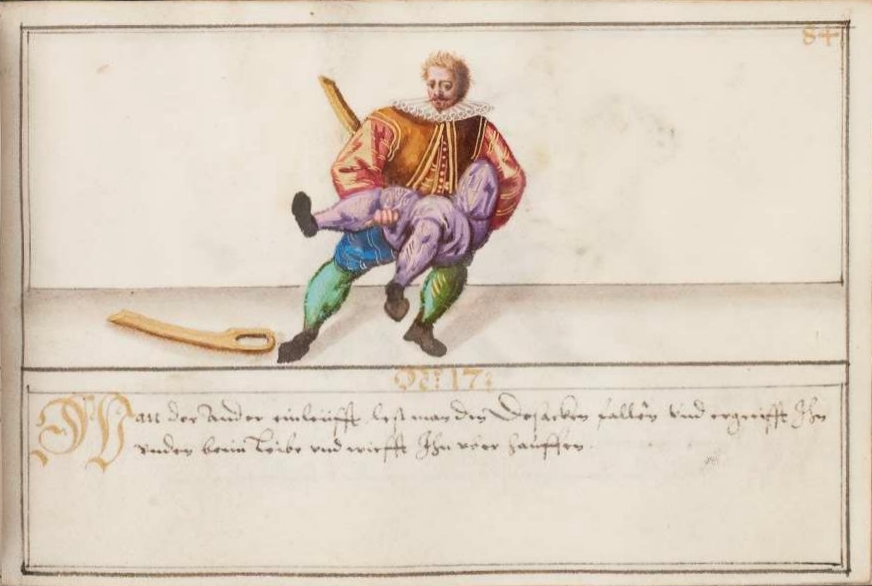 84
No: 17:
Wan der Ander einleufft, lest man den Dosacken fallen vnd ergreifft Ihn
vnden beim Leibe vnd wirfft Ihn vber hauffen.